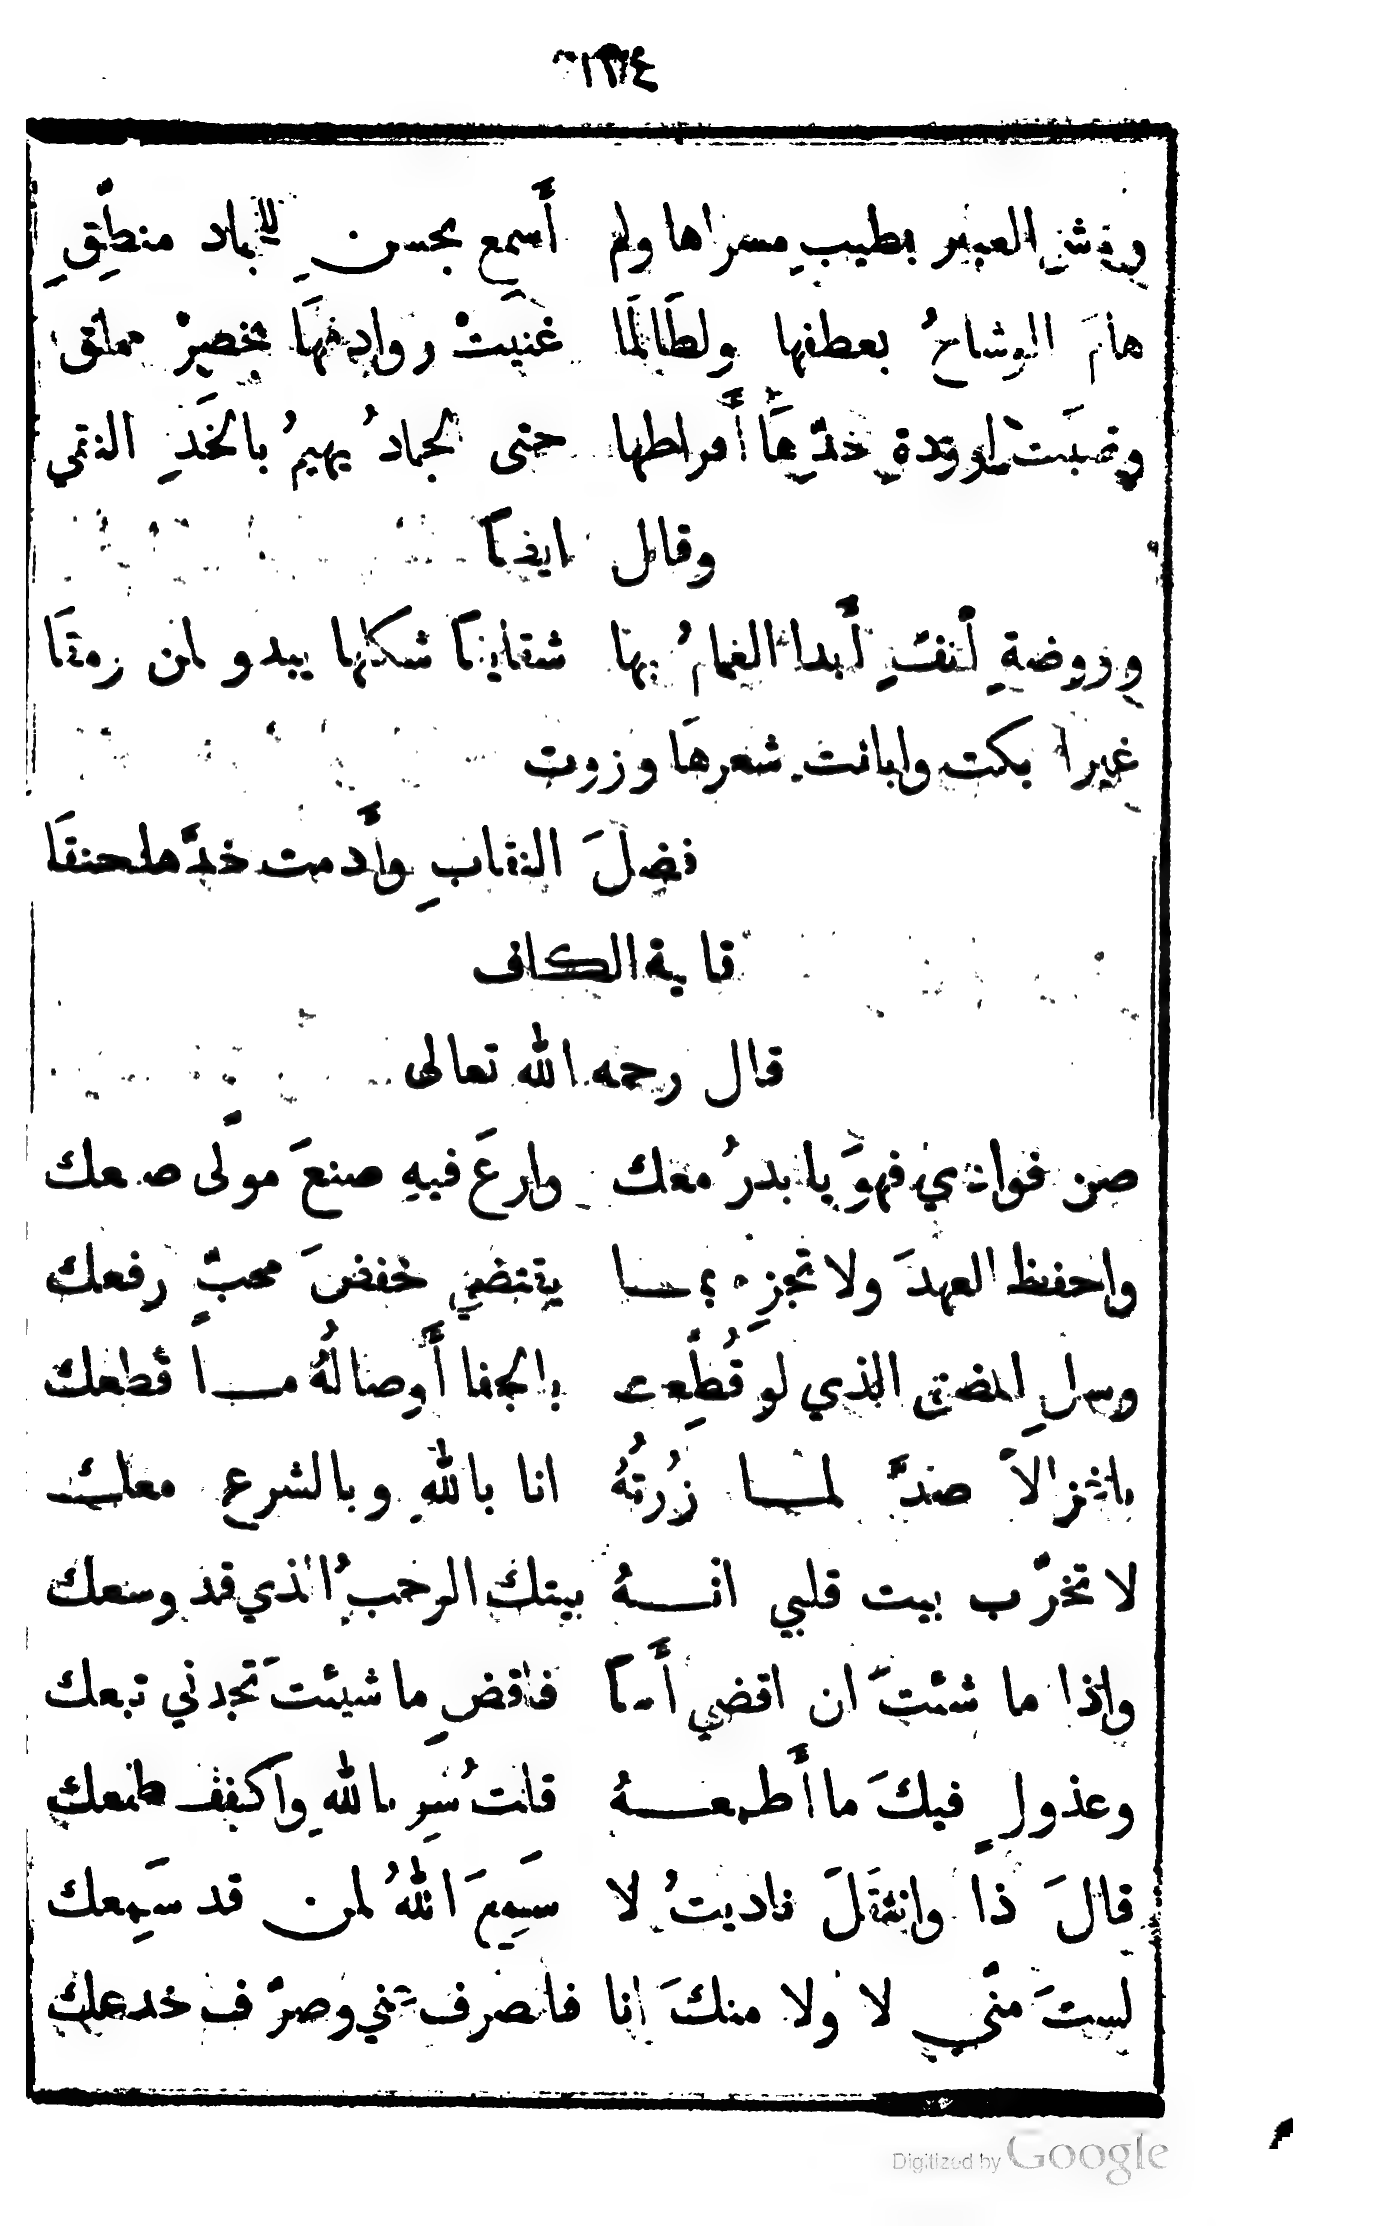 ووشى العبير بطيبِ مسراها ولم أَسمع بحسنِ للجماد منطِّقِ
هامَ الوشاحُ بعطفها ولطَالمَا غنيَتْ روادفهَا بخصرٍ مملق
وصبَتْ لوقدة خدِّهَا أَقراطها حتى الجمادُ يهيمُ بالخَدِ النقي
وقال ايضاً
وروضةٍ أنفٍ أَبدا الغمامُ بها شقايقاً شكلها يبدو لمن رمقَا
غيرا بكت وابانت شعرهَا وزوت
فضلَ النقابِ وأَدمت خدَّها حنقَا
قافية الكاف
قال رحمه الله تعالى
صن فوادي فهوَ يا بدرُ معك وارعَ فيهِ صنعَ مولًى صنعك
واحفظ العهدَ ولا تجزِ بمـــا يقتضي خفضَ محبٍّ رفعك
وسلِ المضنى الذي لو قُطِّعت بالجفا أَوصالهُ مـــا قطعك
يا غزالاً صدَّ لمـــا زُرتهُ انا باللهِ وبالشرع معك
لا تخرّب بيت قلبي انـــهُ بيتك الرحبُ الذي قد وسعك
واذا ما شئتَ ان اقضي أَسًا فاقضِ ما شيئتَ تجدني تبعك
وعذولٍ فيكَ ما أَطمعـــهُ قلتُ سِر باللهِ واكفف طمعك
قالَ ذا وانثقلَ ناديتُ لا سَمِعَ اللهُ لمن قد سَمِعك
لستَ منّي لا ولا منكَ انا فانصرف عني وصرّف خدعك
Digitized by Google